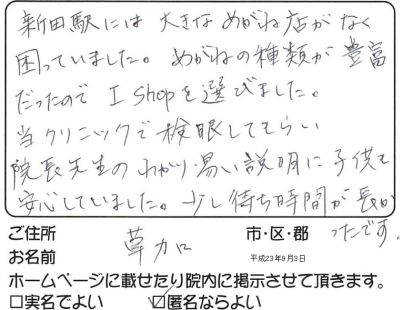 新田駅には大きなめがね店がなく
困っていました。めがねの種類が豊富
だったので I Shopを選びました。
当クリニックで検眼してもらい
院長先生のわかり易い説明に子供も
安心していました。少し待ち時間が長か
ったです。
ご住所 草加 市・区・郡
お名前 平成23年9月3日
ホームページに載せたり院内に掲示させて頂きます。
□実名でよい ☑匿名ならよい